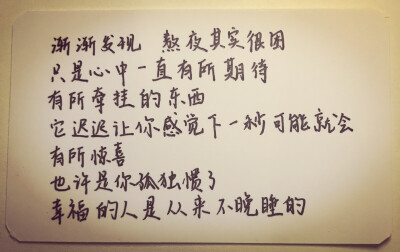 渐渐发现 熬夜其实很困
只是心中一直有所期待
有所牵挂的东西
它迟迟让你感觉下一秒可能就会
有所惊喜
也许是你孤独惯了
幸福的人是从来不晚睡的